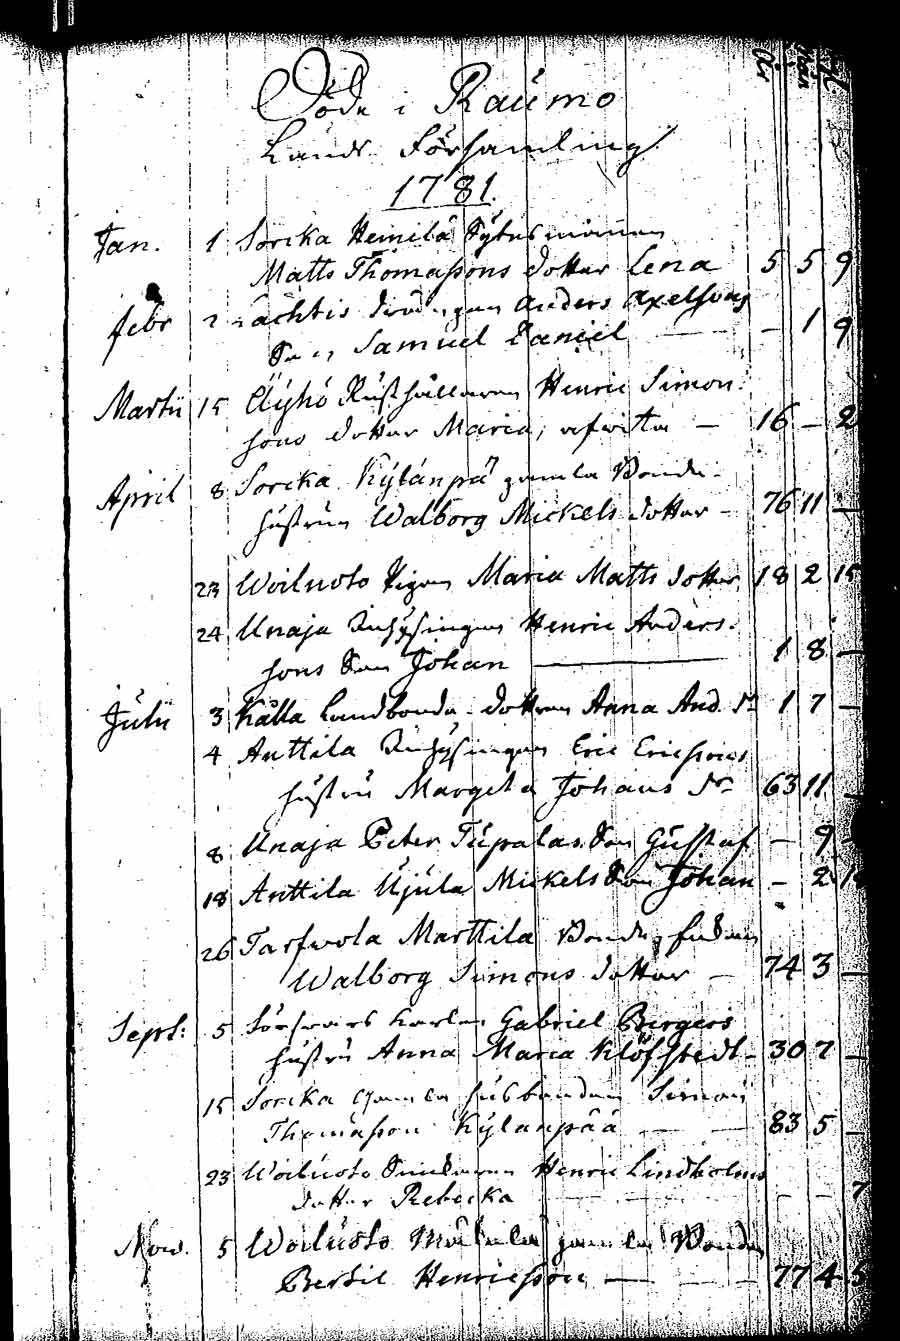 Döde i Raumo
Lands Församling
1781.
År
Jan. 1 Sorcka Heinilä
Matts Thomassons dotter Lena 5 5 9
Febr 2 Lachtis Anders Axelssons
Son Samuel Daniel — 1 9
Martii 15 Äyhö Rusthållaren Henric Simon-
sons dotter Maria, — 16 — 2
April 8 Sorcka Kylänpä gamla Bonde-
hustrun Walborg Mickels dotter — 76 11 —
23 Woiluoto Pigan Maria Matts dotter 18 2 15
24 Unaja Inhysingen Henric Anders-
sons Son Johan — 1 8 —
Julii 3 Kålla Landbonde-dottren Anna And. dr 1 7 —
4 Anttila Inhysingen Eric Ericssons
hustru Margeta Johans dr 63 11 —
8 Unaja Peter Tupalas Son Gustaf — 9 —
18 Anttila Ujula Mickels Son Johan — 2
26 Tarfwola Marttila Bonde
Walborg Simons dotter — 74 3 —
Sept: 5 Gabriel Bergers
hustru Anna Maria Klöfstedt — 30 7 —
15 Sorcka Gamla husbonden Simon
Thomasson Kylänpää — 83 5 —
23 Woiluoto Henric Lindholms
dotter Rebecka — — — 7
Now. 5 Woiluoto gamla Bonden
Bertil Henricsson — 77 4 5